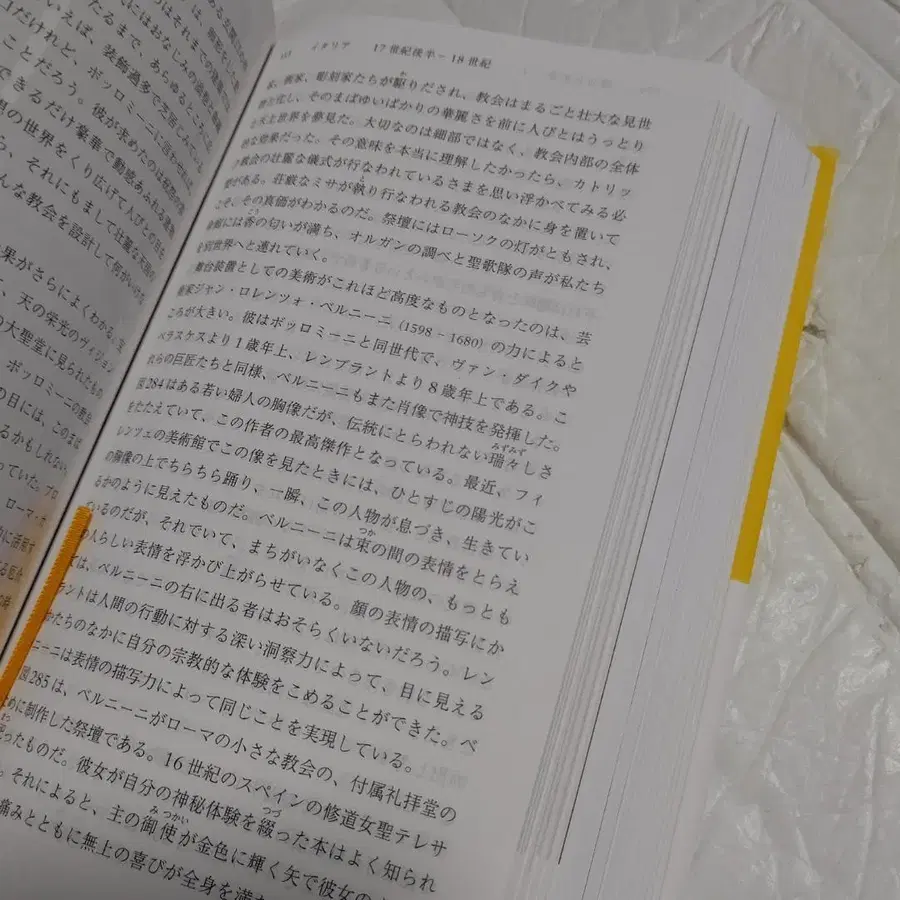 たるまで、あらゆるところに
いえば、装飾過多で芝居
コだけれど、ボッロミーニに言わ
ことだろう。彼が求めたのは祝祭
できるだけ豪華で動感あふれる建物
の世界をくり広げて人びとの目を
ら、それにもまして壮麗な天国の
んな教会を設計して何がいけ
果がさらによくわかる。
、天の栄光のヴィジョン
の大聖堂に見られたもの
ボッロミーニの教会
の目には、このまば
るかもしれない
っていた。プロ
ローマ・カ
的に活用す
る厄介
の時
イタリア　17世紀後半−18世紀
家、画家、彫刻家たちが駆りだされ、教会はまるごと壮大な見世
物と化し、そのまばゆいばかりの華麗さを前に人びとはうっとり
と天上世界を夢見た。大切なのは細部ではなく、教会内部の全体
的な効果だった。その意味を本当に理解したかったら、カトリッ
ク教会の壮麗な儀式が行なわれているさまを思い浮かべてみる必
要がある。荘厳なミサが執り行なわれる教会のなかに身を置いて
こそ、その真価がわかるのだ。祭壇にはローソクの灯がともされ、
には香の匂いが満ち、オルガンの調べと聖歌隊の声が私たち
を別世界へと連れていく。
舞台装置としての美術がこれほど高度なものとなったのは、芸
術家ジャン・ロレンツォ・ベルニーニ（1598−1680）の力によると
ころが大きい。彼はボッロミーニと同世代で、ヴァン・ダイクや
ベラスケスより1歳年上、レンブラントより8歳年上である。こ
れらの巨匠たちと同様、ベルニーニもまた肖像で神技を発揮した。
図284はある若い婦人の胸像だが、伝統にとらわれない瑞々しさ
をたたえていて、この作者の最高傑作となっている。最近、フィ
レンツェの美術館でこの像を見たときには、ひとすじの陽光がこ
の胸像の上でちらちら踊り、一瞬、この人物が息づき、生きてい
るかのように見えたものだ。ベルニーニは束の間の表情をとらえ
ているのだが、それでいて、まちがいなくこの人物の、もっとも
の人らしい表情を浮かび上がらせている。顔の表情の描写にか
ては、ベルニーニの右に出る者はおそらくいないだろう。レン
ラントは人間の行動に対する深い洞察力によって、目に見える
かたちのなかに自分の宗教的な体験をこめることができた。ベ
ニーニは表情の描写力によって同じことを実現している。
図285は、ベルニーニがローマの小さな教会の、付属礼拝堂の
めに制作した祭壇である。16世紀のスペインの修道女聖テレサ
ったものだ。彼女が自分の神秘体験を綴った本はよく知られ
。それによると、主の御使が金色に輝く矢で彼女の
痛みとともに無上の喜びが全身を満た